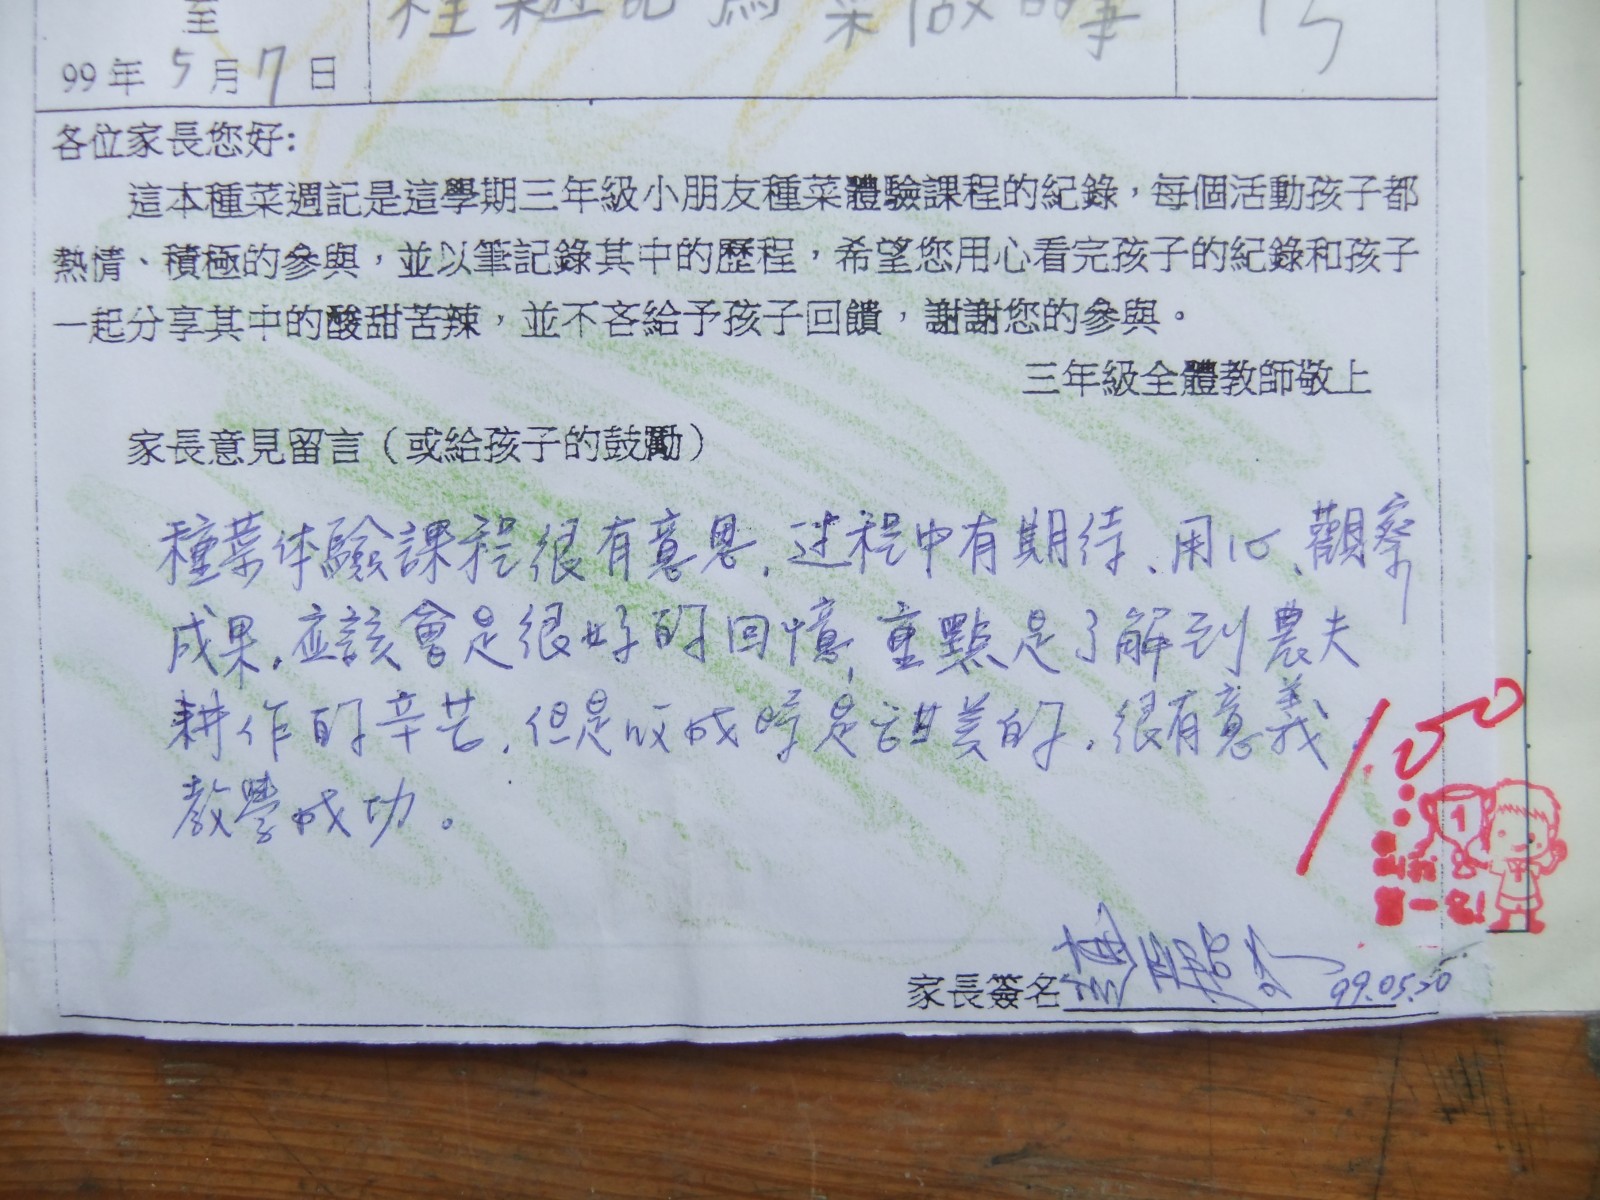 至
種菜週記
99年 5月 7日
各位家長您好:
這本種菜週記是這學期三年級小朋友種菜體驗課程的紀錄，每個活動孩子都
熱情、積極的參與，並以筆記錄其中的歷程，希望您用心看完孩子的紀錄和孩子
一起分享其中的酸甜苦辣，並不吝給予孩子回饋，謝謝您的參與。
三年級全體教師敬上
家長意見留言（或給孩子的鼓勵）
種菜体驗課程很有意思，过程中有期待、用心、觀察
成果，应該會是很好的回憶，重點是了解到農夫
耕作的辛苦，但是收成時是甜美的，很有意義
教學成功。
100
1
第一名!
家長簽名
99.05.20